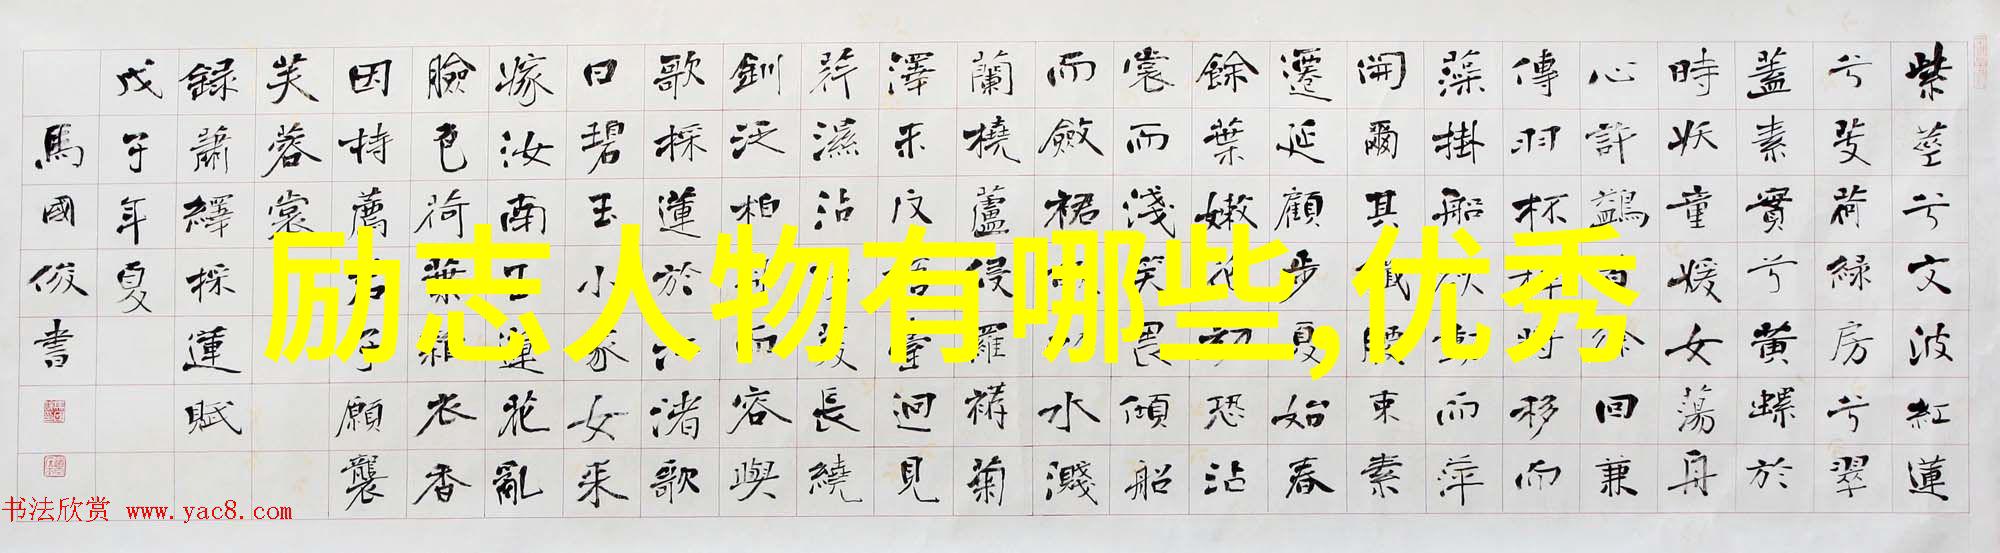 紫莖兮文波紅蓮
兮芰荷綠房兮翠
蓋素實兮黃螺於
時妖童媛女蕩舟
心許鷁首徐回兼
傳羽杯櫂將移而
藻掛船欲動而萍
開爾其纖腰束素
遷延顧步夏始春
餘葉嫩花初恐沾
裳而淺笑畏傾船
而斂裾故以水濺
蘭橈蘆侵羅褠菊
澤未反梧臺迥見
荇濕沾衫菱長繞
釧泛柏舟而容與
歌採蓮於江渚歌
曰碧玉小家女來
嫁汝南王蓮花亂
臉色荷葉雜衣香
因持薦君子願襲
芙蓉裳
錄蕭繹採蓮賦
戊子年夏
馬國俊書
励志人物有哪些,优秀
书法欣赏 www.yac8.com